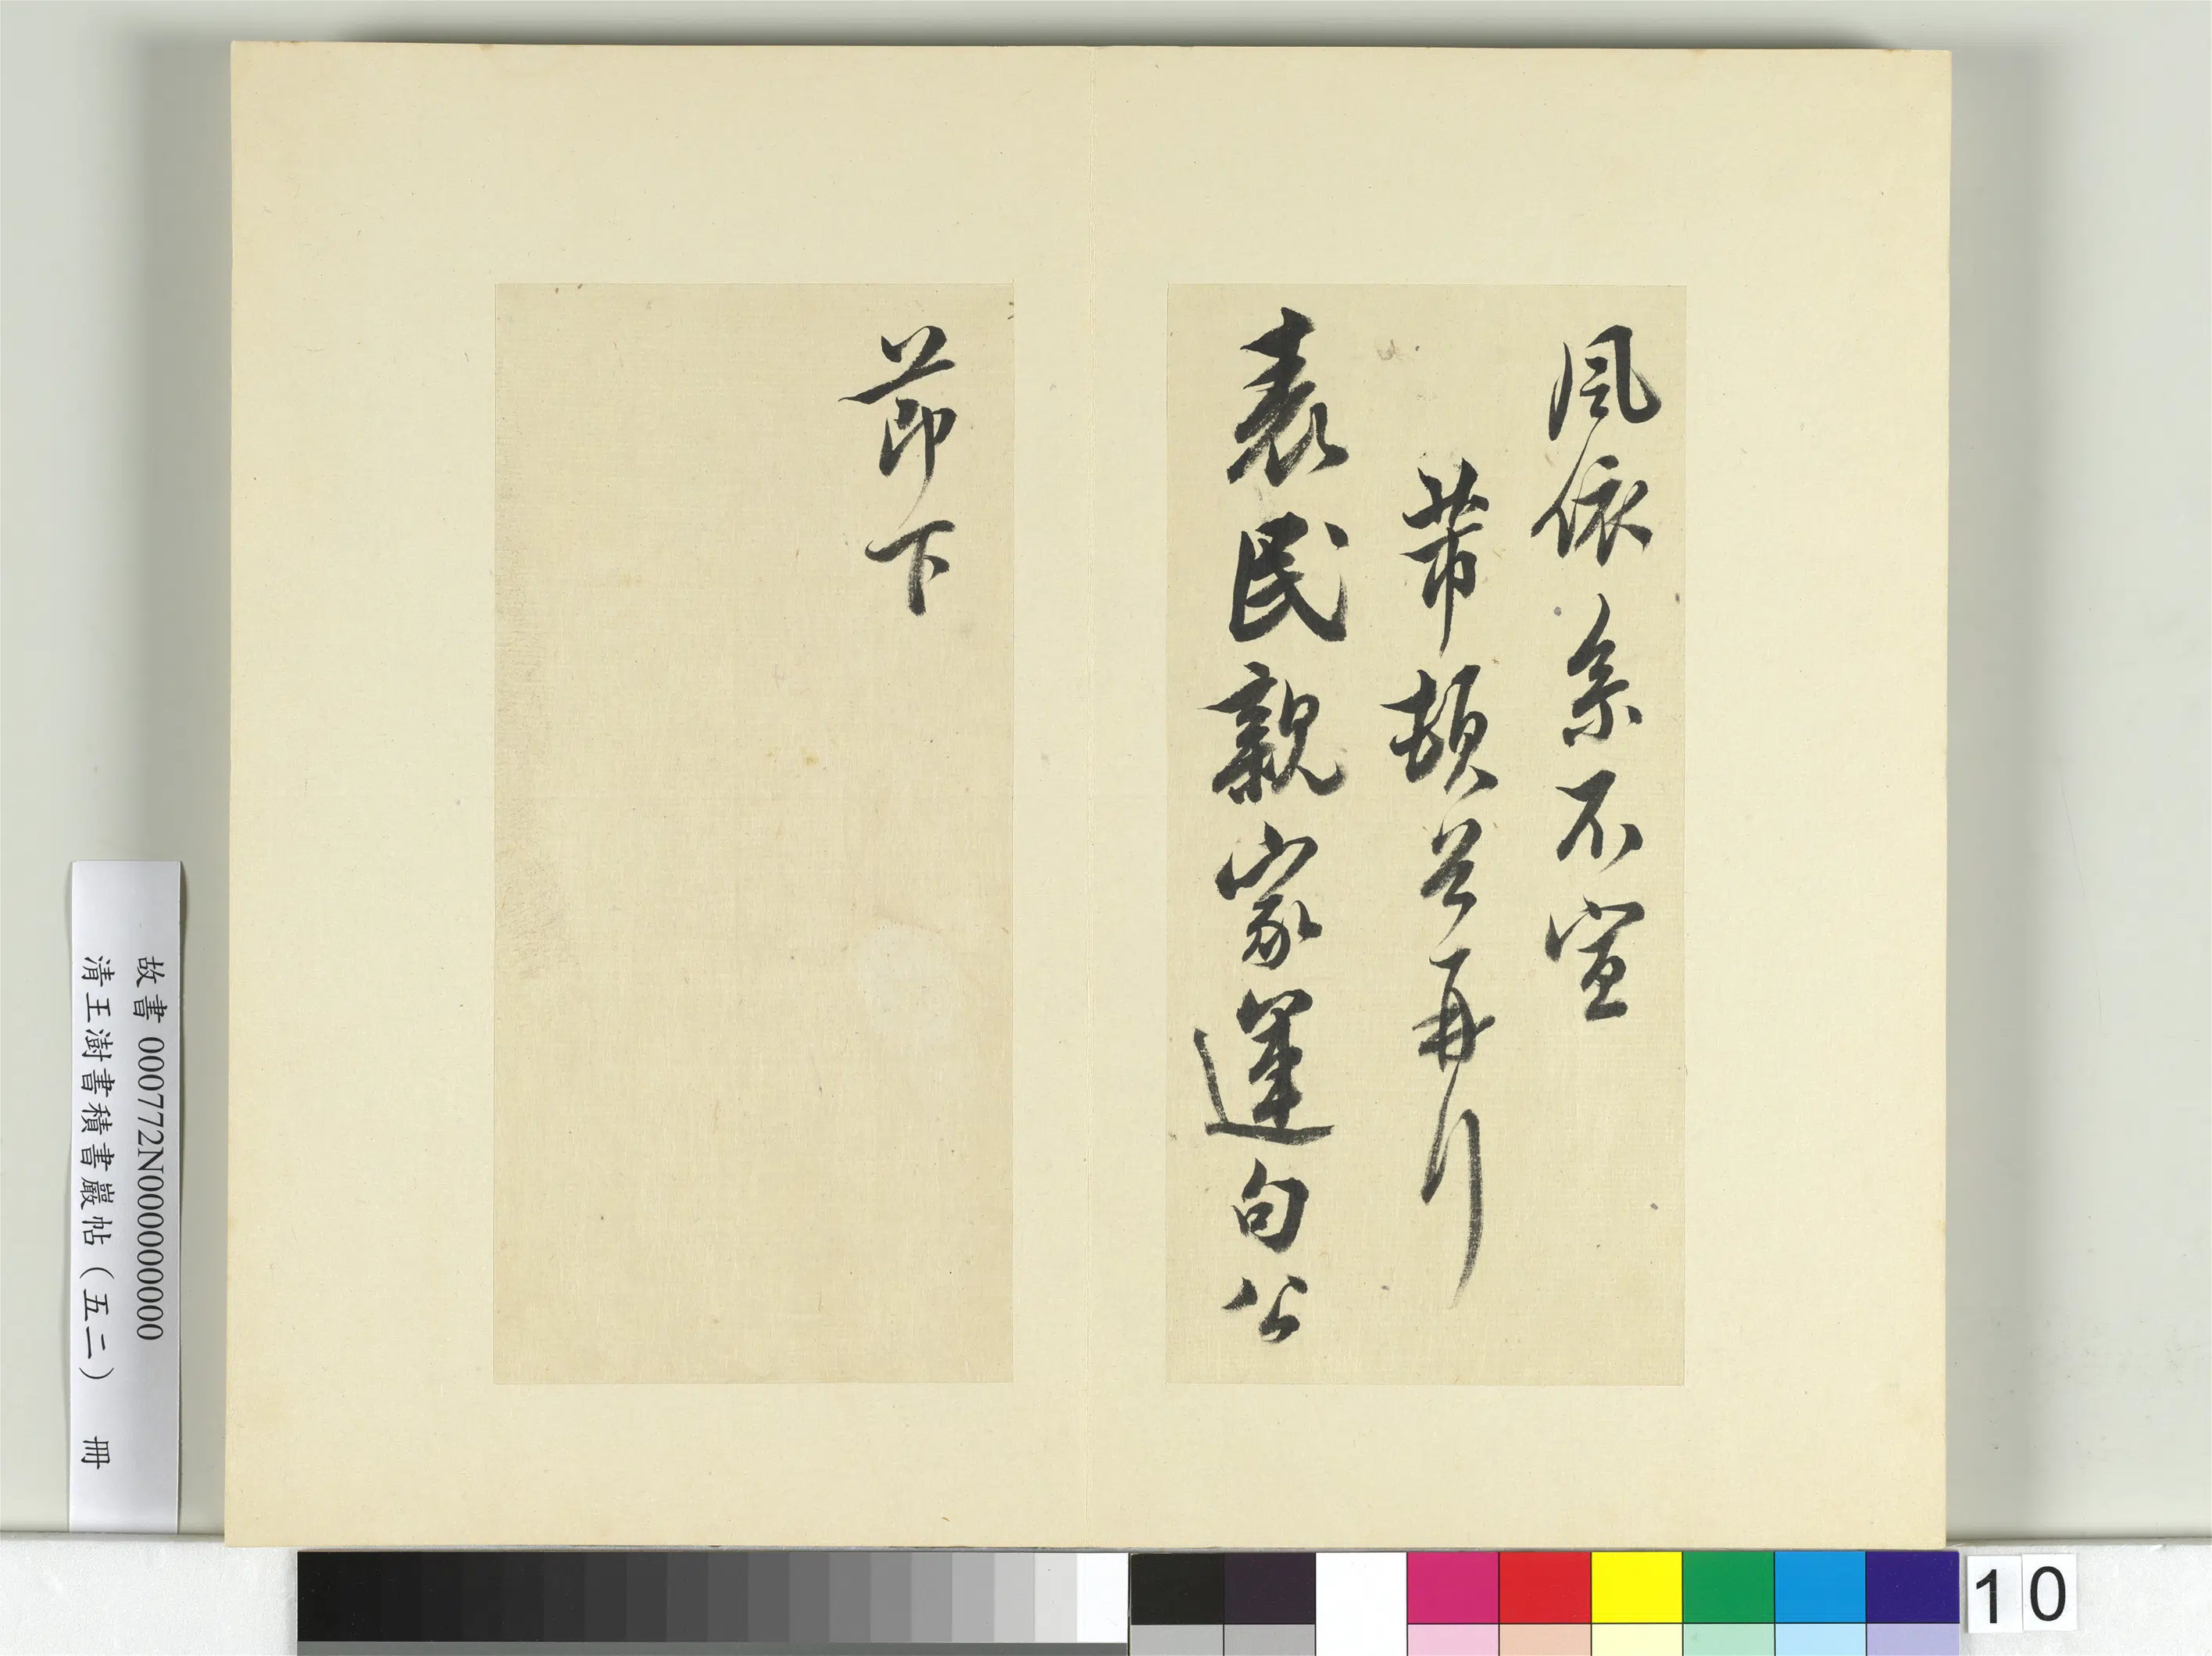 風依系不宣
芾頓首再拜
表民親家運句公
節下
故書 000772N000000000
清王澍書積書巖帖（五二） 冊
10